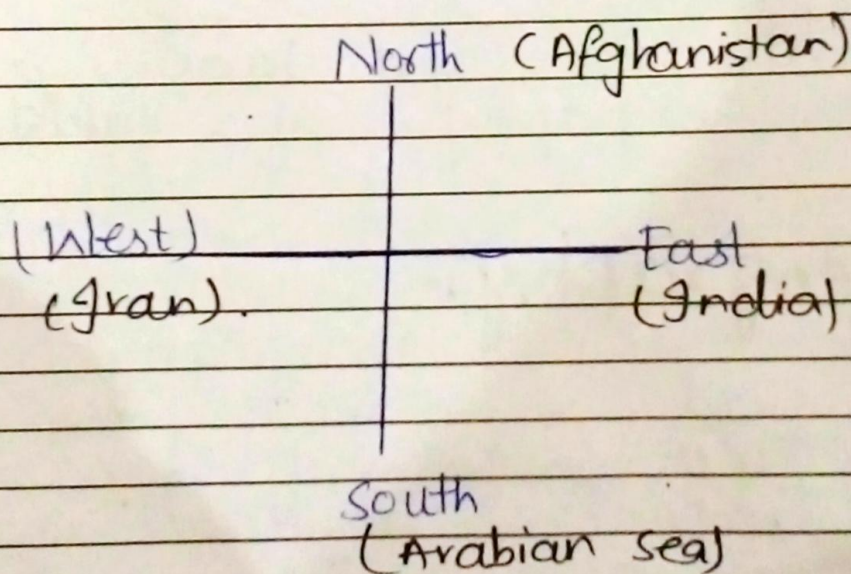 North (Afghanistan)
(West)
East
(Iran).
(India)
South
(Arabian sea)